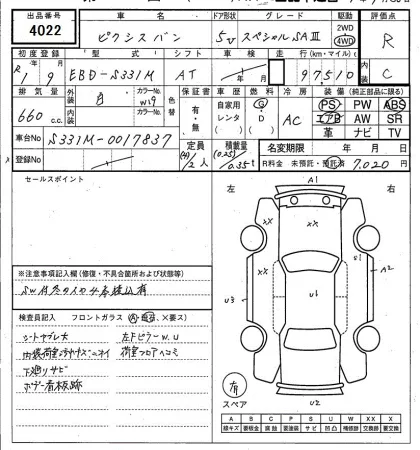 出品番号 車名 ドア形状 グレード 駆動 評価点
4022 ピクシス バン 5V スペシャルSAⅢ 2WD 4WD R
初度登録 型式 シフト 車検 走行 (km・マイル) 内装
R1/9 EBD-S331M AT 97,510 C
排気量 外装 カラーNo. 色替 保証書 車歴 燃料 冷房 装備 (純正部品に限る)
660 c.c. 白 W19 有・無 自家用 レンタ G・D AC PS PW ABS
エアB AW SR
革 ナビ TV
車台No S331M-0017837
登録No 定員 積載量 名変期限 年 月 日
(4)/2人 (0.25)/0.35t R料金 未預託・預託済 7,020 円
セールスポイント
左 A1 右
XX XX
XX S1 A2
U3 U1
※注意事項記入欄(修復・不具合箇所および状態等)
SW付冬タイヤ4本積込有
検査員記入 フロントガラス(A・飛石、X要ス)
シートヤブレ大 左Fピラー W.U
荷室フロアヘコミ
下廻リサビ
ボデー看板跡
有
スペア U2
A B C P S U W X XX
線キズ 要板金 腐蝕 要塗装 サビ 凹凸 補修跡 交換跡 要交換